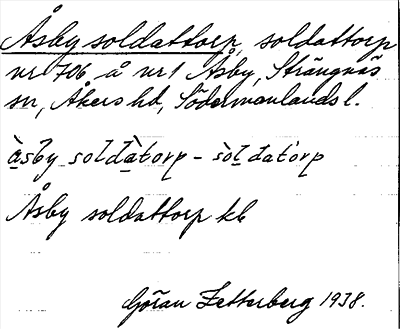 Åsby soldattorp, soldattorp
nr 706 å nr 1 Åsby, Strängnäs
sn, Åkers hd, Södermanlands l.
àsby soldàtorp - sòldatorp
Åsby soldattorp kb
Göran Zetterberg 1938.